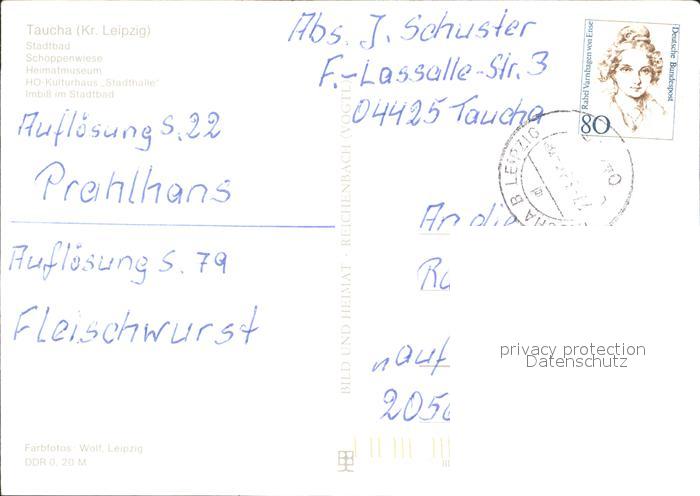 Taucha (Kr. Leipzig)
Stadtbad
Schoppenwiese
Heimatmuseum
HO-Kulturhaus „Stadthalle"
Imbiß im Stadtbad
Auflösung S. 22
Prahlhans
Auflösung S. 79
Fleischwurst
Farbfotos: Wolf, Leipzig
DDR 0,20 M
BILD UND HEIMAT · REICHENBACH (VOGTL)
Abs. J. Schuster
F.-Lassalle-Str. 3
04425 Taucha
Rahel Varnhagen von Ense
Deutsche Bundespost
80
TAUCHA B LEIPZIG
An die
„auf
privacy protection
Datenschutz